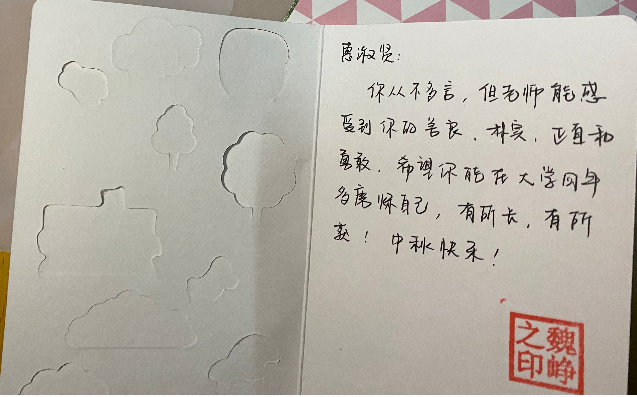 惠淑贤：
你从不多言，但老师能感
受到你的善良、朴实、正直和
勇敢，希望你能在大学四年
多磨炼自己，有所长，有所
获！中秋快乐！
魏峥之印